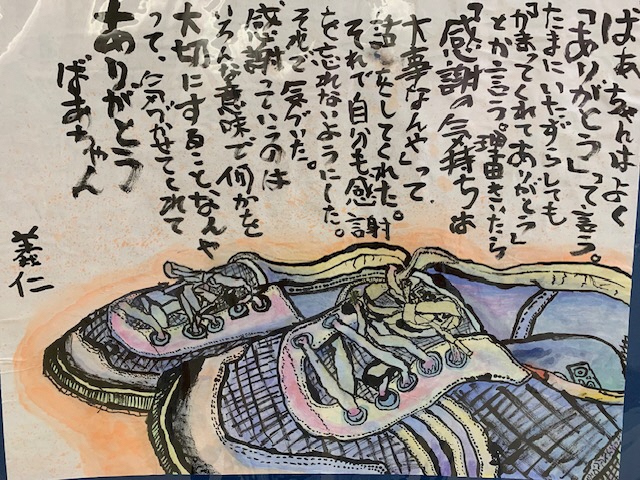 ばあちゃんはよく
「ありがとう」って言う。
たまにいたずらしても
「かまってくれてありがとう」
とか言う。理由きいたら
「感謝の気持ちは
大事なんや」って
話をしてくれた。
それで自分も感謝
を忘れないようにした。
それで気づいた。
感謝っていうのは
いろんな意味で何かを
大切にすることなんや
って、気づかせてくれて
ありがとう
ばあちゃん
義仁